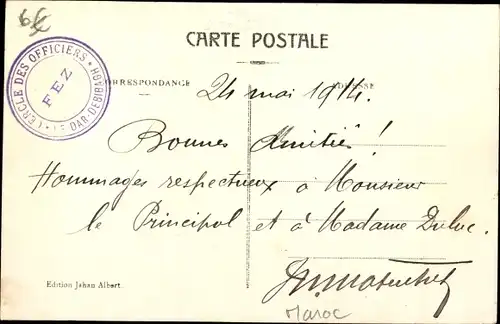 6€
CARTE POSTALE
CERCLE DES OFFICIERS
FEZ
DAR-DEBIBAGH
CORRESPONDANCE
ADRESSE
24 mai 1914.
Bonnes Amitiés!
Hommages respectueux à Monsieur
le Principal et à Madame Duluc.
Edition Jahan Albert.
Maroc